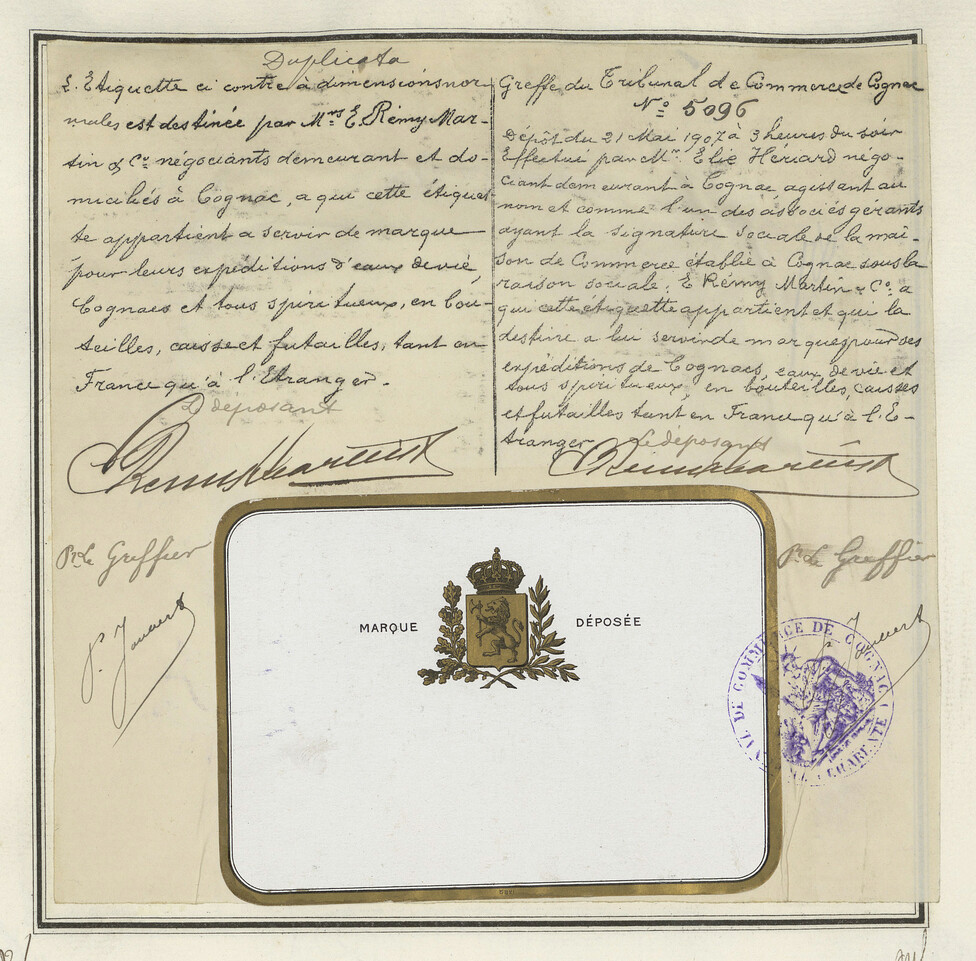 Duplicata
L'Etiquette ci contre à dimensions nor-
males est destinée par Mrs E. Rémy Mar-
tin & Co négociants demeurant et do-
miciliés à Cognac, a qui cette étiquet-
te appartient a servir de marque
pour leurs expéditions d'eaux de vie,
Cognacs et tous spiritueux, en bou-
teilles, caisses et futailles, tant en
France qu'à l'Etranger.
Le déposant
E Remy Martin & Co
Pr Le Greffier
Greffe du Tribunal de Commerce de Cognac
No 5096
Dépôt du 21 Mai 1907 à 3 heures du soir
Effectué par Mr. Elie Hériard négo-
ciant demeurant à Cognac, agissant au
nom et comme l'un des associés gérants
ayant la signature sociale de la mai-
son de Commerce établie à Cognac sous la
raison sociale, E Rémy Martin & Co. a
qui cette étiquette appartient et qui la
destine a lui servir de marque pour ses
expéditions de Cognacs, eaux de vie et
tous spiritueux, en bouteilles, caisses
et futailles tant en France qu'à l'E-
tranger
Le déposant
E Remy Martin & Co
Pr Le Greffier
MARQUE DÉPOSÉE
DE COMMERCE DE COGNAC
CHARENTE